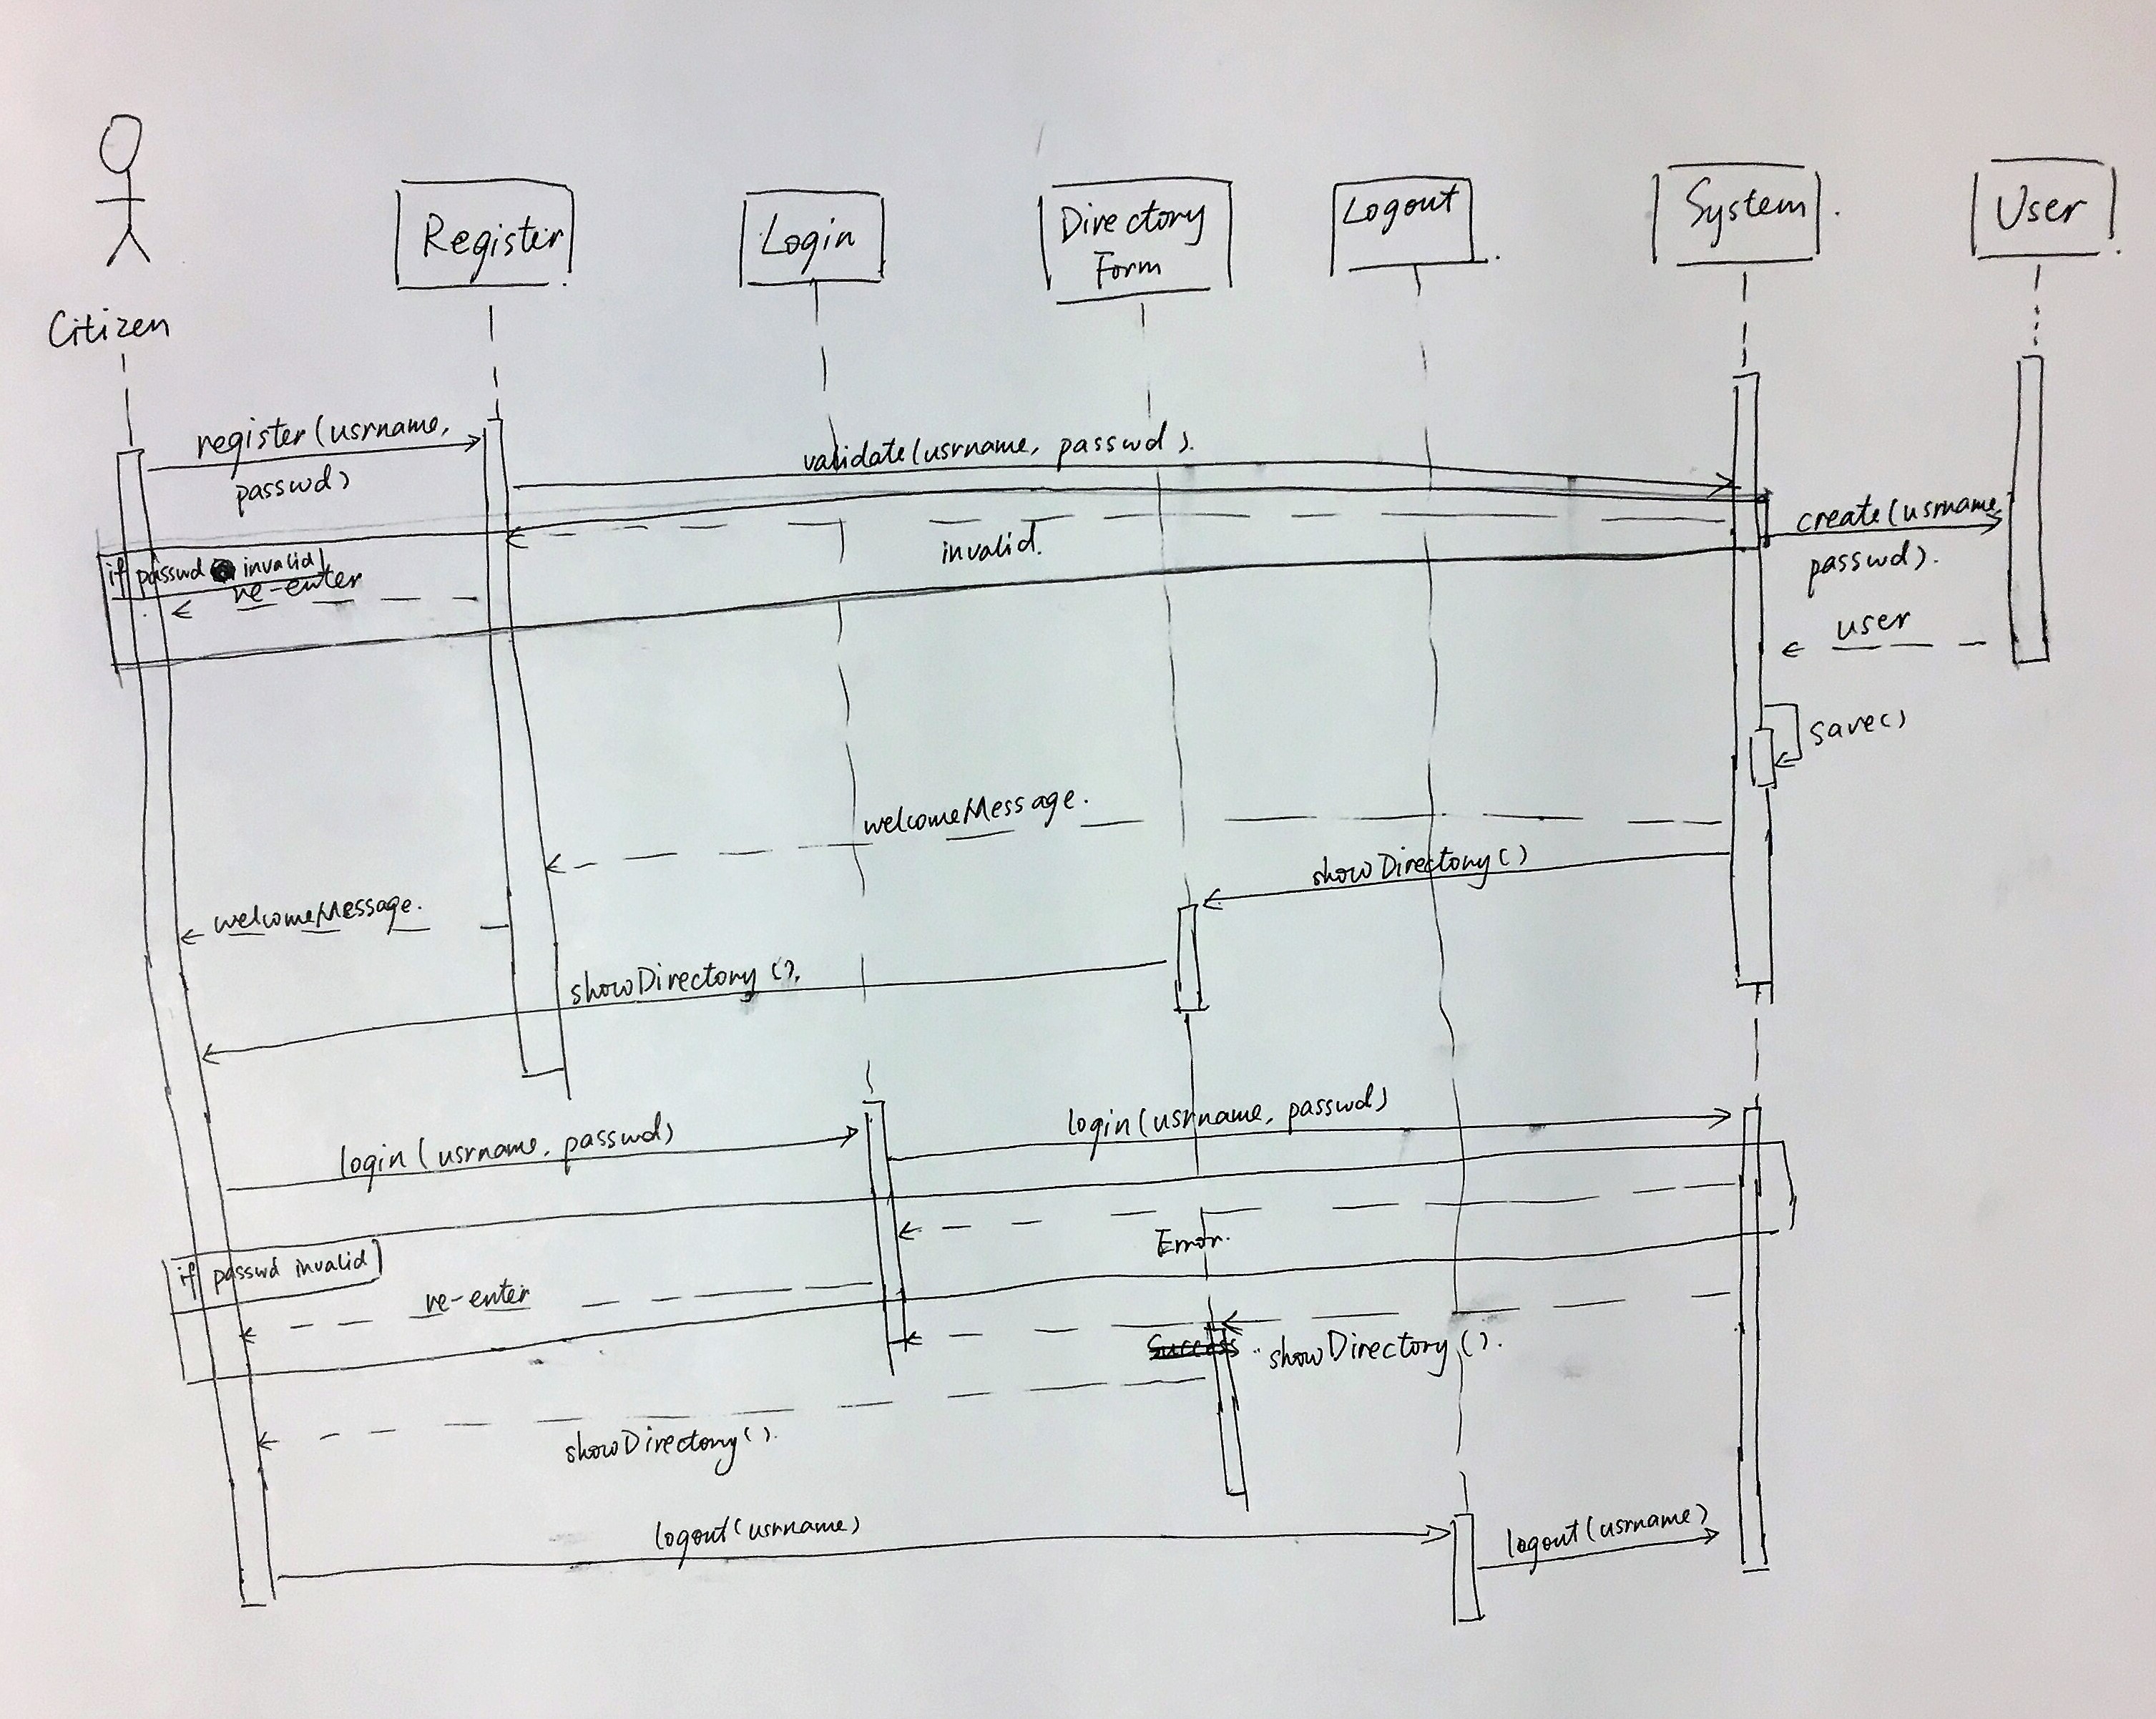 Citizen
Register
Login
Directory
Form
Logout
System
User
register(usrname,
passwd)
validate(usrname, passwd).
create(usrname,
passwd).
invalid.
if passwd invalid
re-enter
user
save()
welcomeMessage.
showDirectory()
welcomeMessage.
showDirectory().
login(usrname, passwd)
login(usrname, passwd)
Error.
if passwd invalid
re-enter
Success
showDirectory().
showDirectory().
logout(usrname)
logout(usrname)